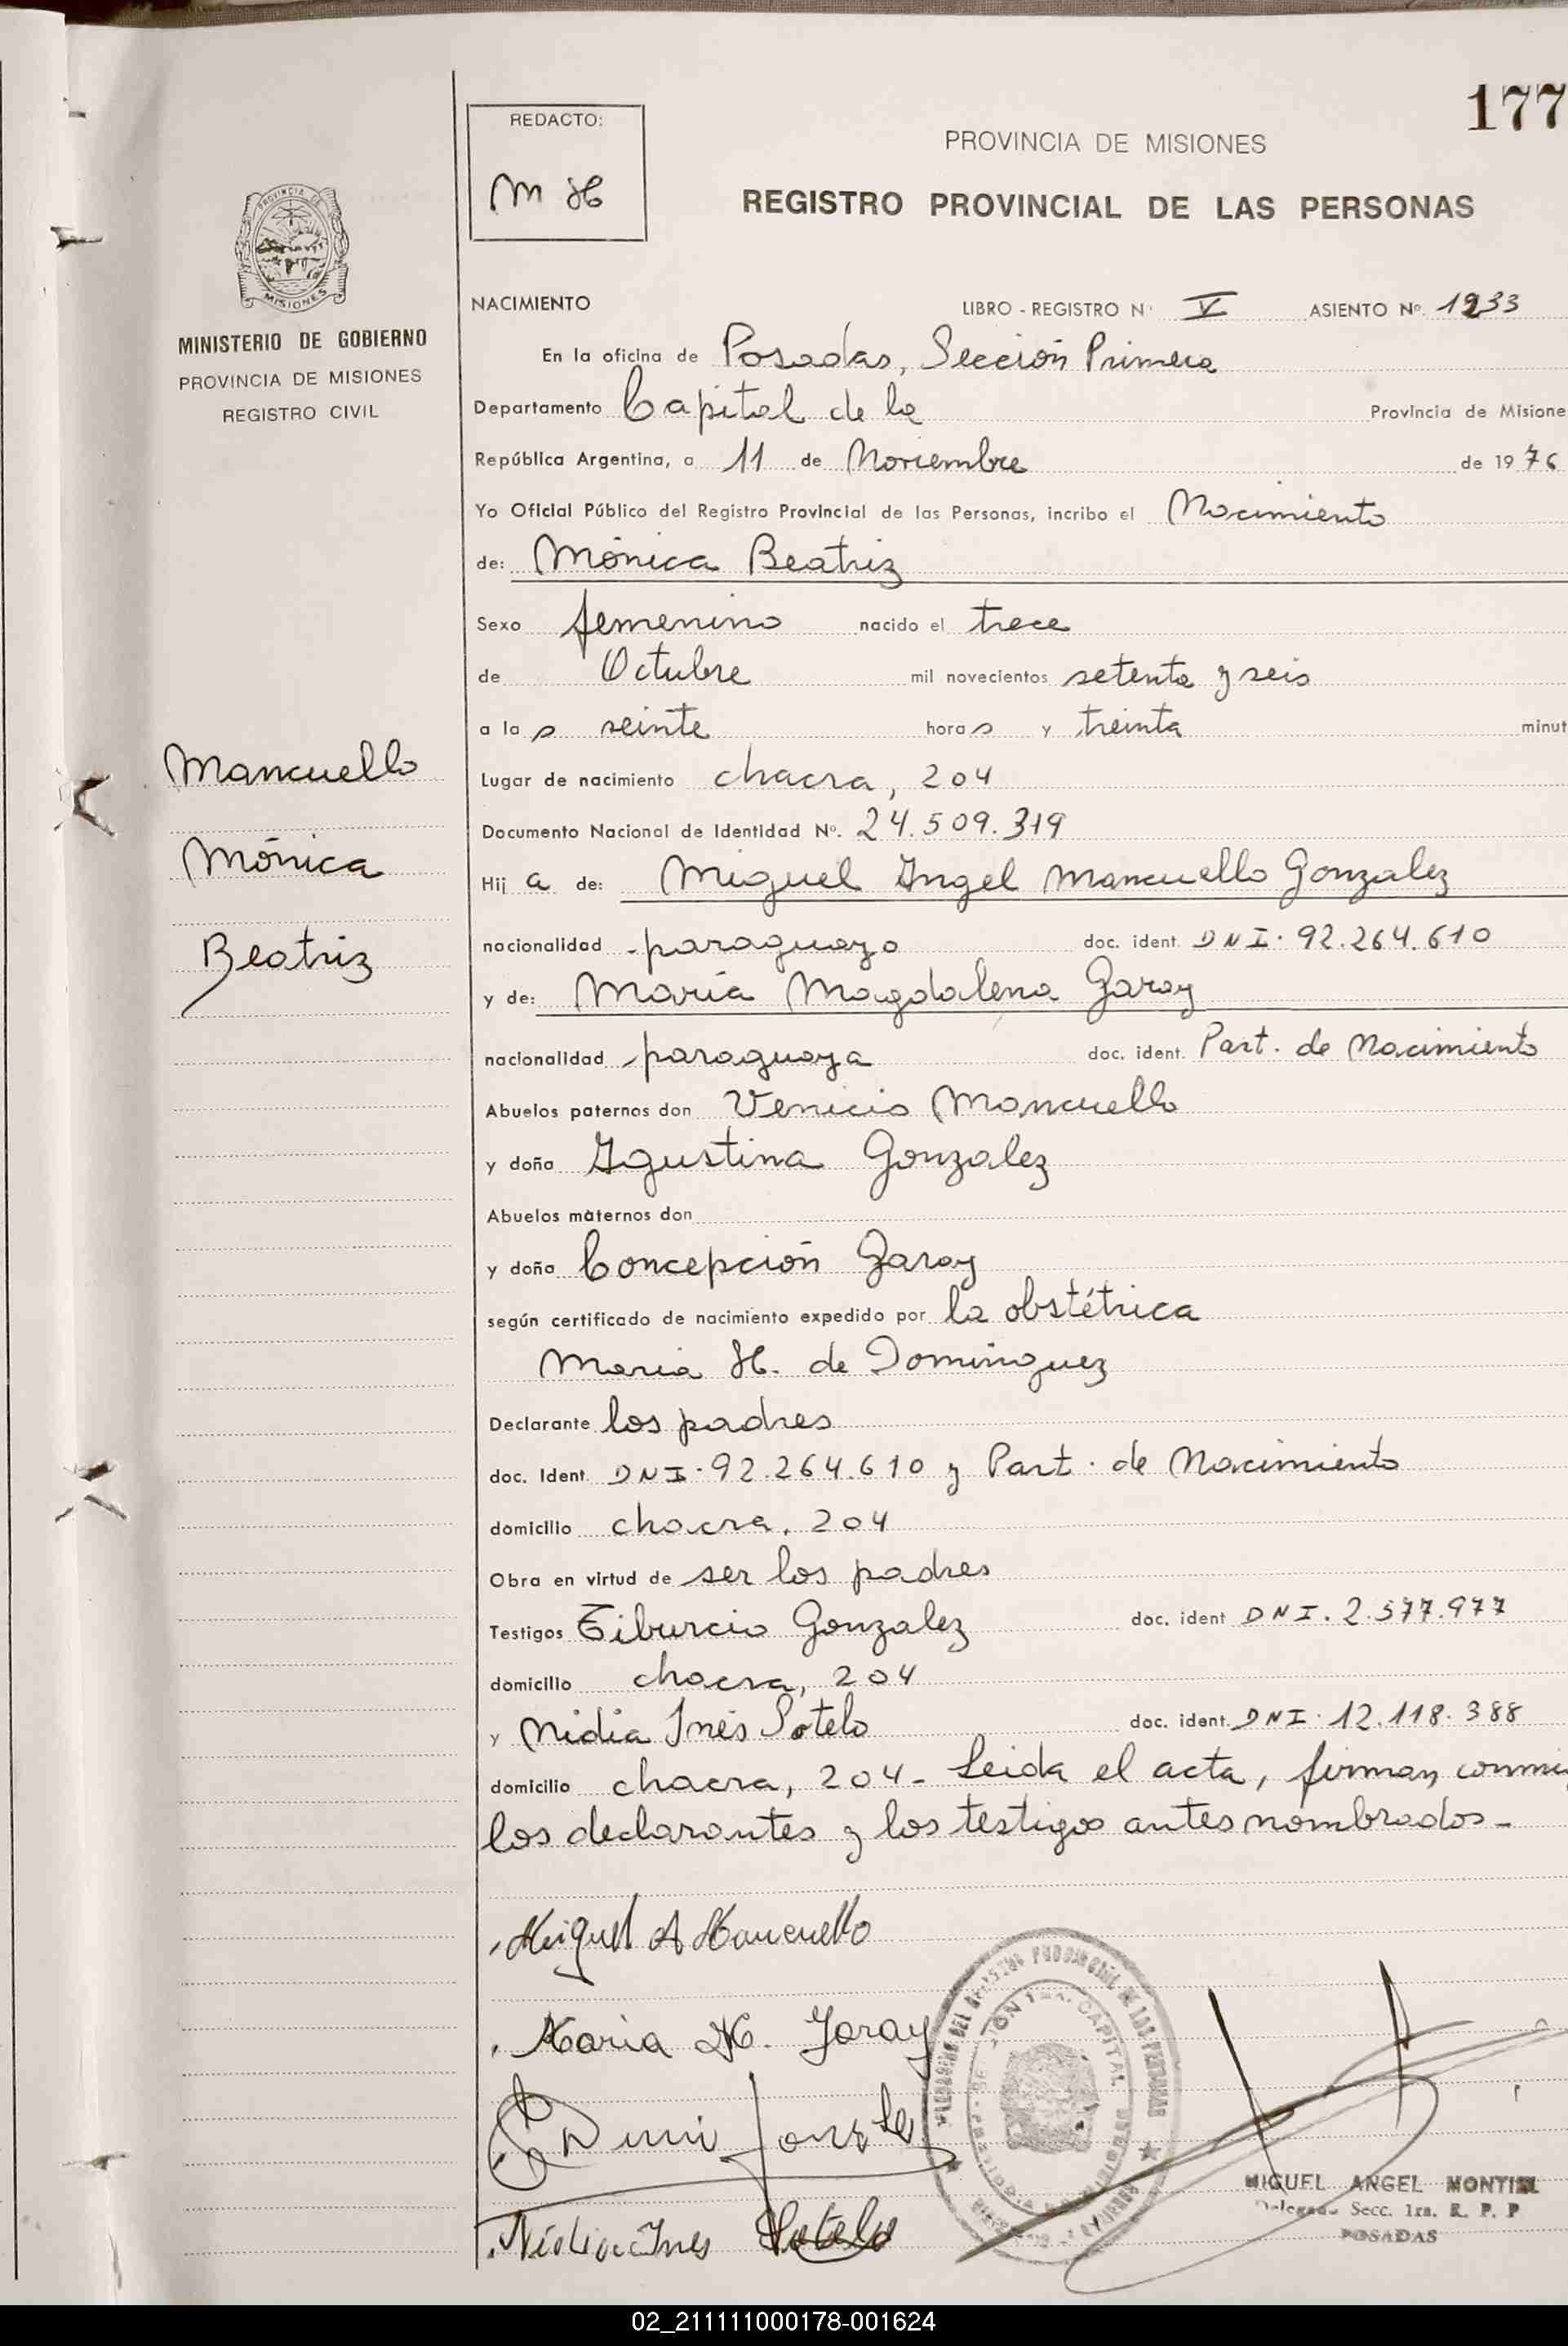 177
REDACTO:
M H
PROVINCIA DE MISIONES
REGISTRO PROVINCIAL DE LAS PERSONAS
PROVINCIA DE
MISIONES
MINISTERIO DE GOBIERNO
PROVINCIA DE MISIONES
REGISTRO CIVIL
NACIMIENTO LIBRO - REGISTRO Nº V ASIENTO Nº 1933
En la oficina de Posadas, Sección Primera
Departamento Capital de la Provincia de Misione
República Argentina, a 11 de Noviembre de 1976
Yo Oficial Público del Registro Provincial de las Personas, incribo el Nacimiento
de: Mónica Beatriz
Sexo femenino nacido el trece
de Octubre mil novecientos setenta y seis
a las veinte horas y treinta minut
Mancuello
Mónica
Beatriz
Lugar de nacimiento chacra, 204
Documento Nacional de Identidad Nº. 24.509.319
Hija de: Miguel Angel Mancuello Gonzalez
nacionalidad paraguayo doc. ident. DNI. 92.264.610
y de: María Magdalena Garay
nacionalidad paraguaya doc. ident. Part. de Nacimiento
Abuelos paternos don Venicio Mancuello
y doña Agustina Gonzalez
Abuelos maternos don
y doña Concepción Garay
según certificado de nacimiento expedido por la obstétrica
María H. de Domínguez
Declarante los padres
doc. Ident. DNI. 92.264.610 y Part. de Nacimiento
domicilio chacra. 204
Obra en virtud de ser los padres
Testigos Tiburcio Gonzalez doc. ident DNI. 2.577.977
domicilio chacra, 204
y Nidia Inés Sotelo doc. ident. DNI. 12.118.388
domicilio chacra, 204 - Leida el acta, firman conmi
los declarantes y los testigos antes nombrados -
Miguel A Mancuello
Maria M. Garay
Nidia Ines Sotelo
MIGUEL ANGEL MONTIEL
Delegado Secc. 1ra. R. P. P
POSADAS
02_211111000178-001624